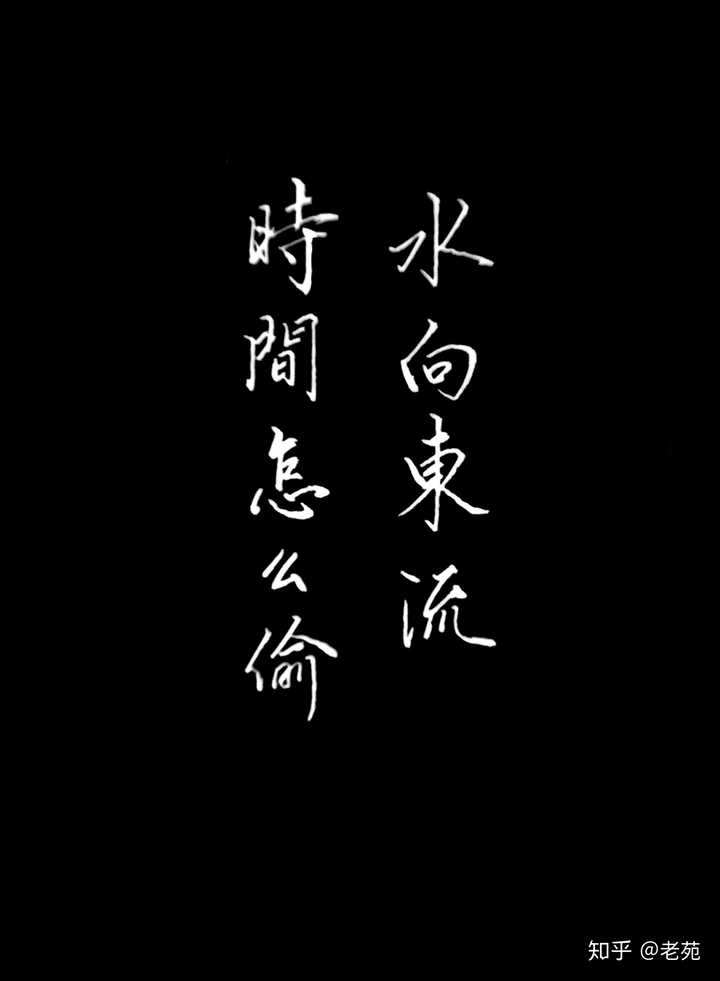 水向東流
時間怎么偷
知乎 @老苑